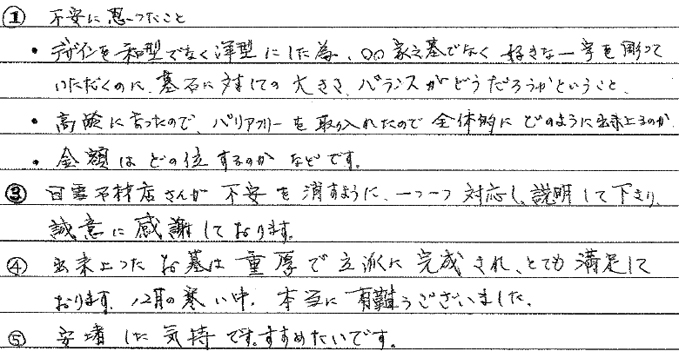 ① 不安に思ったこと
・デザインを和型でなく洋型にした為、〇〇家之墓でなく好きな一字を彫って
いただくのに、墓石に対しての大きさ、バランスがどうだろうかということ、
・高齢に言ったので、バリアフリーを取り入れたので全体的にどのように出来上るのか
・金額はどの位するのかなどです。
③ 白雲石材店さんが不安を消すように、一つ一つ対応し、説明して下さり、
誠意に感謝しております。
④ 出来上ったお墓は重厚で立派に完成され、とても満足して
おります。12月の寒い中、本当に有難うございました。
⑤ 安堵した気持です。すすめたいです。